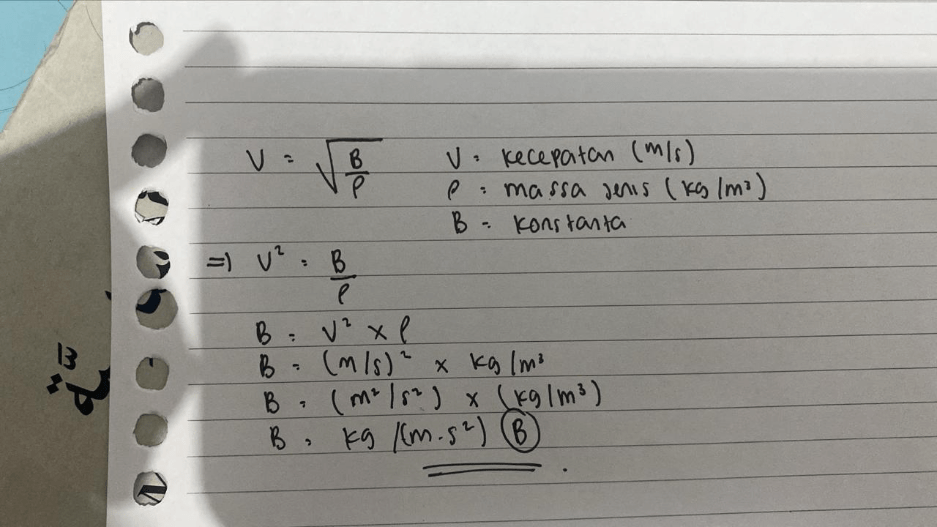 V = √B/ρ V = kecepatan (m/s)
ρ = massa jenis (kg/m³)
B = konstanta
=) V² = B/ρ
B = V² x ρ
B = (m/s)² x kg/m³
B = (m²/s²) x (kg/m³)
B = kg/(m.s²) B